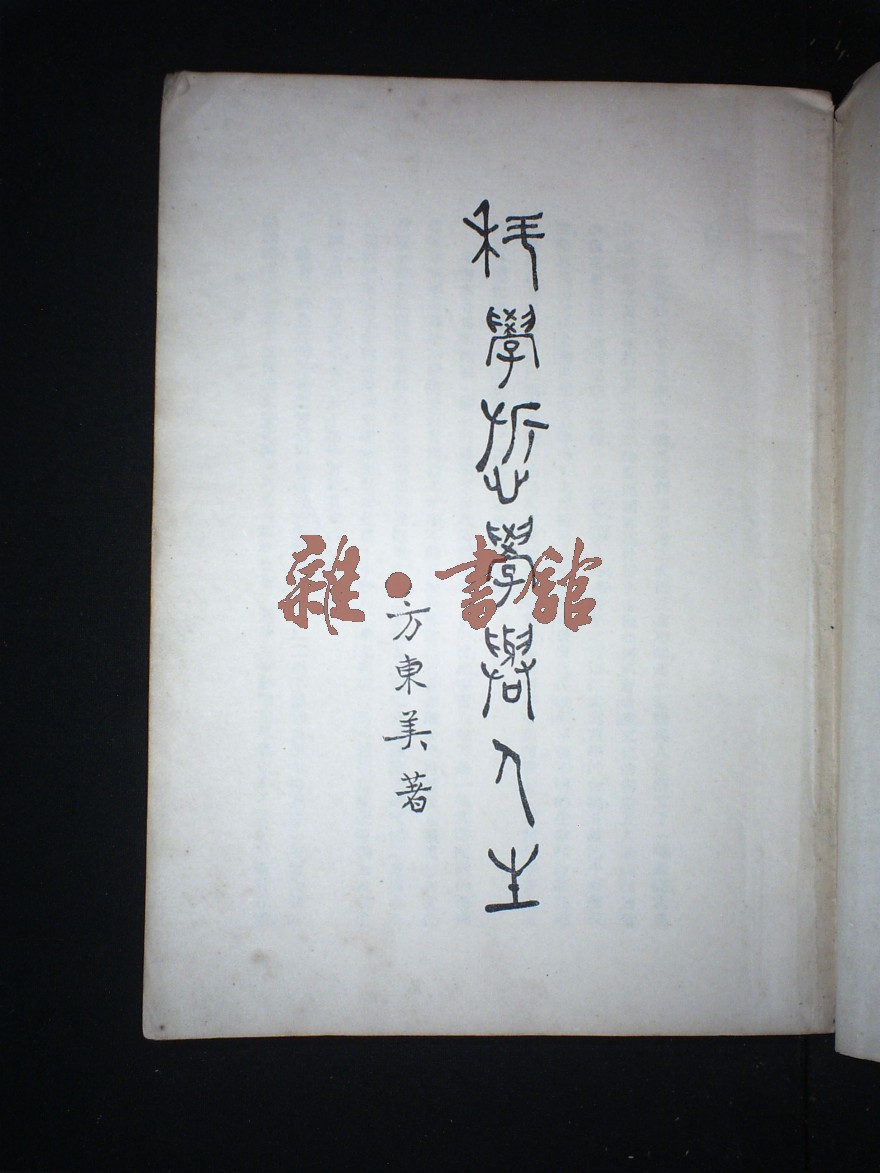 科學哲學與人生
方東美著
雜·書館